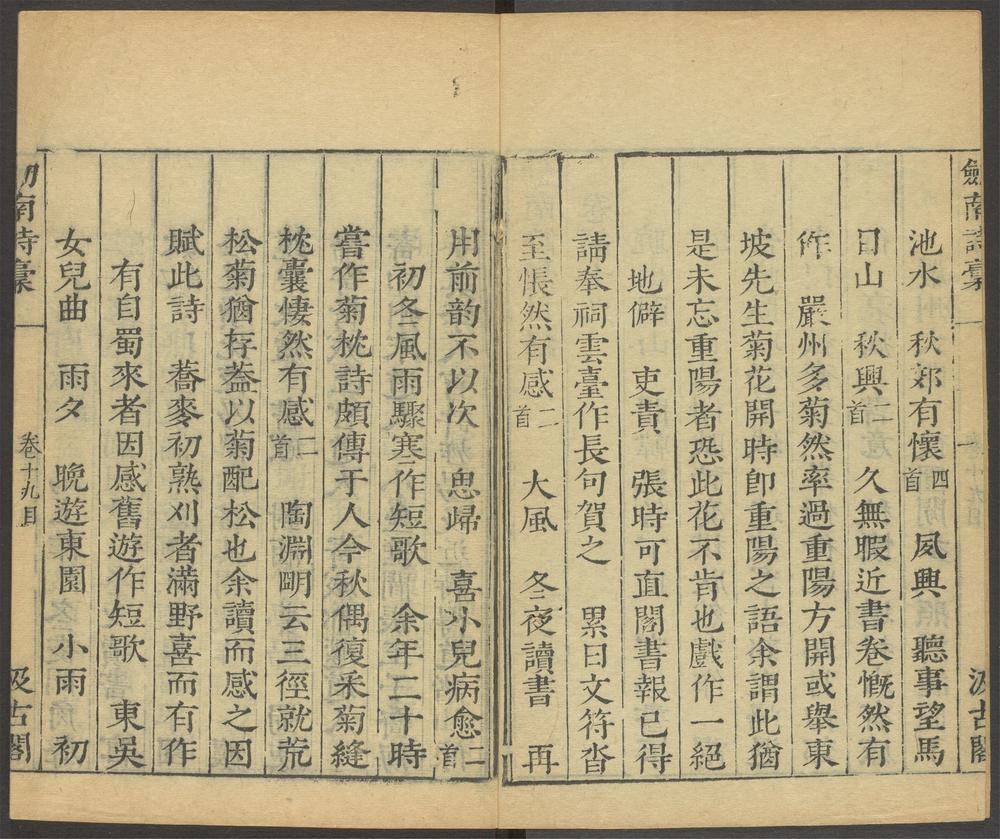 劍南詩稾
汲古閣
池水　秋郊有懷四首　夙興　聽事望馬
日山　秋興二首　久無暇近書卷慨然有
作　嚴州多菊然率過重陽方開或舉東
坡先生菊花開時卽重陽之語余謂此猶
是未忘重陽者恐此花不肯也戲作一絕
地僻　吏責　張時可直閣書報已得
請奉祠雲臺作長句賀之　累日文符沓
至悵然有感二首　大風　冬夜讀書　再
用前韵不以次　思歸　喜小兒病愈二首
初冬風雨驟寒作短歌　余年二十時
嘗作菊枕詩頗傳于人今秋偶復采菊縫
枕囊悽然有感二首　陶淵明云三徑就荒
松菊猶存葢以菊配松也余讀而感之因
賦此詩　蕎麥初熟刈者滿野喜而有作
有自蜀來者因感舊遊作短歌　東吳
女兒曲　雨夕　晚遊東園　小雨　初
南詩稾
卷十九目
汲古閣